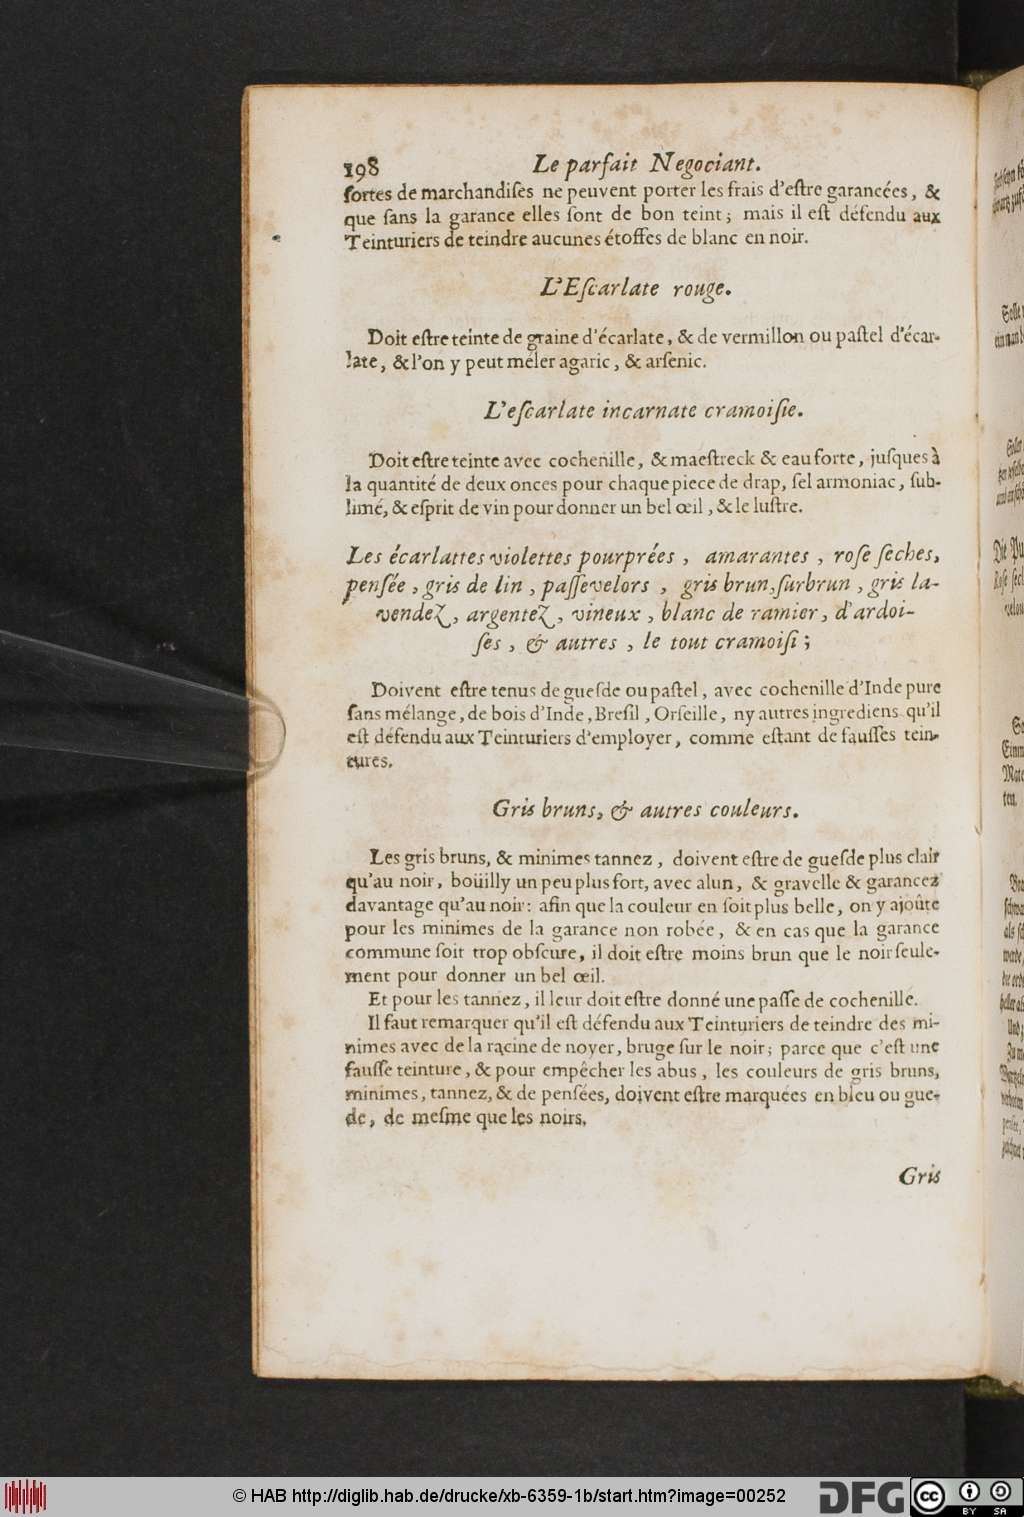 198 Le parfait Negociant.
ſortes de marchandiſes ne peuvent porter les frais d'eſtre garancées, &
que ſans la garance elles ſont de bon teint; mais il eſt défendu aux
Teinturiers de teindre aucunes étoffes de blanc en noir.
L'Eſcarlate rouge.
Doit eſtre teinte de graine d'écarlate, & de vermillon ou paſtel d'écar-
late, & l'on y peut méler agaric, & arſenic.
L'eſcarlate incarnate cramoiſie.
Doit eſtre teinte avec cochenille, & maeſtreck & eau forte, juſques à
la quantité de deux onces pour chaque piece de drap, ſel armoniac, ſub-
limé, & eſprit de vin pour donner un bel œil, & le luſtre.
Les écarlattes violettes pourprées, amarantes, roſe ſeches,
penſée, gris de lin, paſſevelors, gris brun, ſurbrun, gris la-
vendez, argentez, vineux, blanc de ramier, d'ardoi-
ſes, & autres, le tout cramoiſi;
Doivent eſtre tenus de gueſde ou paſtel, avec cochenille d'Inde pure
ſans mélange, de bois d'Inde, Breſil, Orſeille, ny autres ingrediens qu'il
eſt défendu aux Teinturiers d'employer, comme eſtant de fauſſes tein-
tures.
Gris bruns, & autres couleurs.
Les gris bruns, & minimes tannez, doivent eſtre de gueſde plus clair
qu'au noir, boüilly un peu plus fort, avec alun, & gravelle & garancez
davantage qu'au noir: afin que la couleur en ſoit plus belle, on y ajoûte
pour les minimes de la garance non robée, & en cas que la garance
commune ſoit trop obſcure, il doit eſtre moins brun que le noir ſeule-
ment pour donner un bel œil.
Et pour les tannez, il leur doit eſtre donné une paſſe de cochenille.
Il faut remarquer qu'il eſt défendu aux Teinturiers de teindre des mi-
nimes avec de la racine de noyer, bruge ſur le noir; parce que c'eſt une
fauſſe teinture, & pour empêcher les abus, les couleurs de gris bruns,
minimes, tannez, & de penſées, doivent eſtre marquées en bleu ou gue-
de, de meſme que les noirs.
Gris
© HAB http://diglib.hab.de/drucke/xb-6359-1b/start.htm?image=00252
DFG
cc BY SA